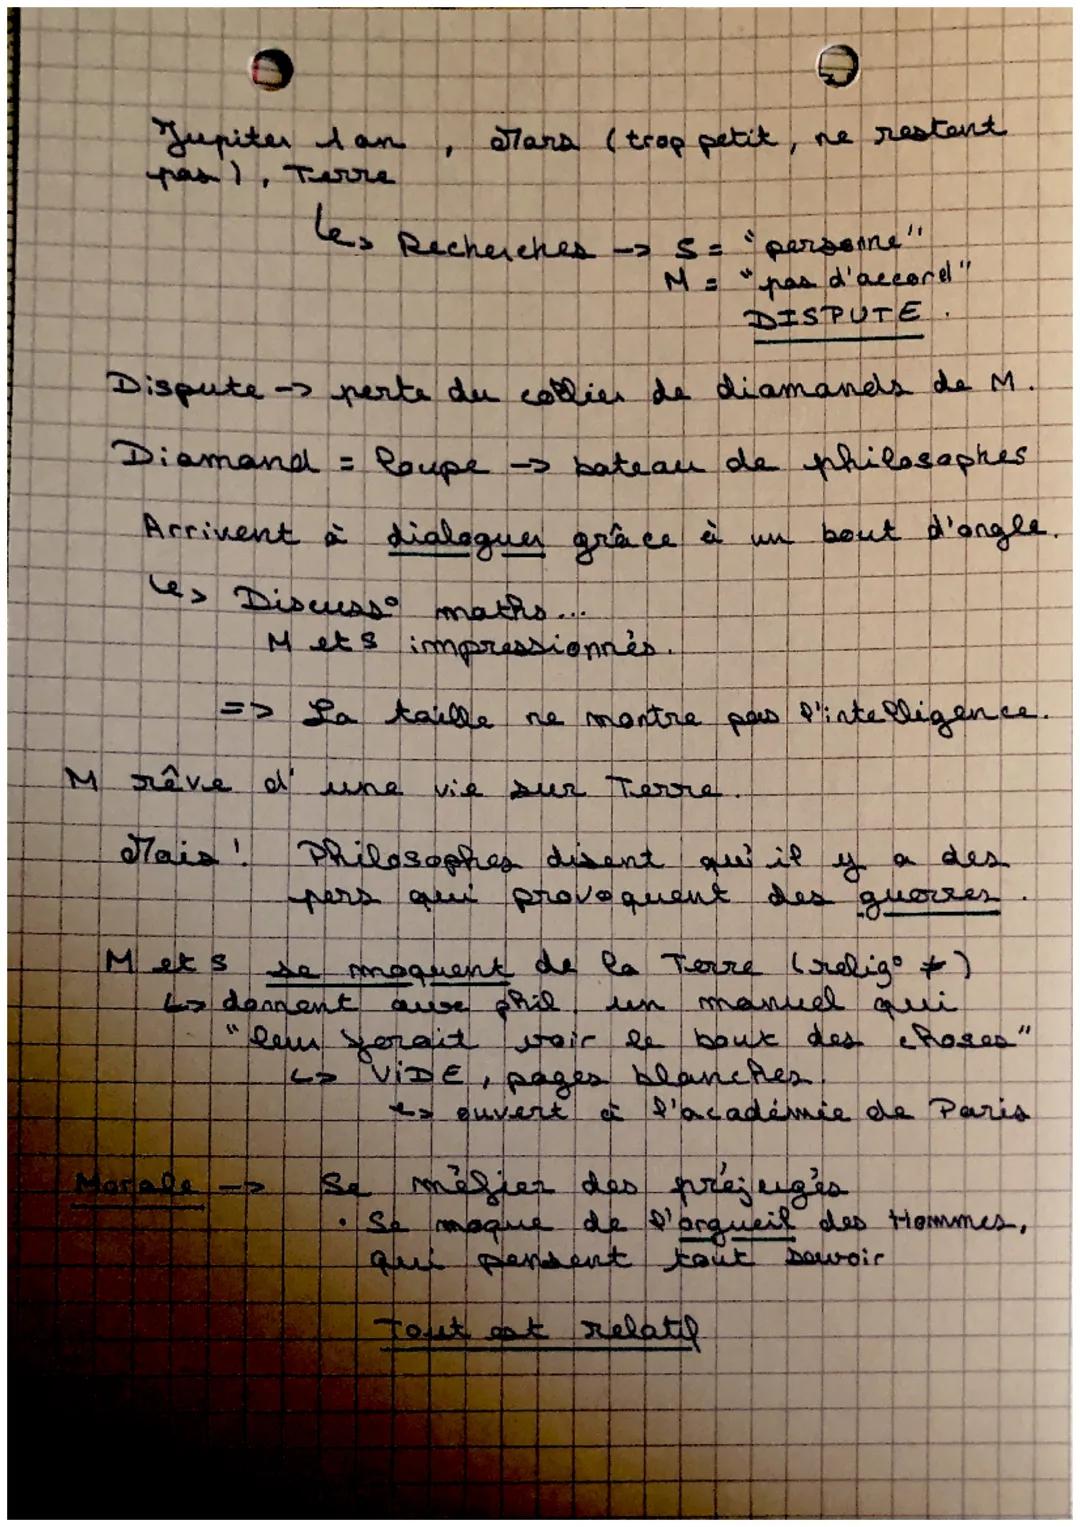 Jupiter 1 an, Mars (trop petit, ne restent
pas), Terre
↳ Recherches -> S = "personne"
M = "pas d'accord"
DISPUTE.
Dispute -> perte du collier de diamands de M.
Diamand = loupe -> bateau de philosophes
Arrivent à dialoguer grâce à un bout d'ongle.
↳ Discuss° maths...
M et S impressionnés.
=> La taille ne montre pas l'intelligence.
M rêve d'une vie sur Terre.
Mais ! Philosophes disent qu'il y a des
pers qui provoquent des guerres.
M et S se moquent de la Terre (relig° ≠)
↳ donnent aux phil. un manuel qui
"leur ferait voir le bout des choses"
↳ VIDE, pages blanches.
↳ ouvert à l'académie de Paris
Morale -> Se méfier des préjugés
• Se moque de l'orgueil des Hommes,
qui pensent tout savoir
Tout est relatif